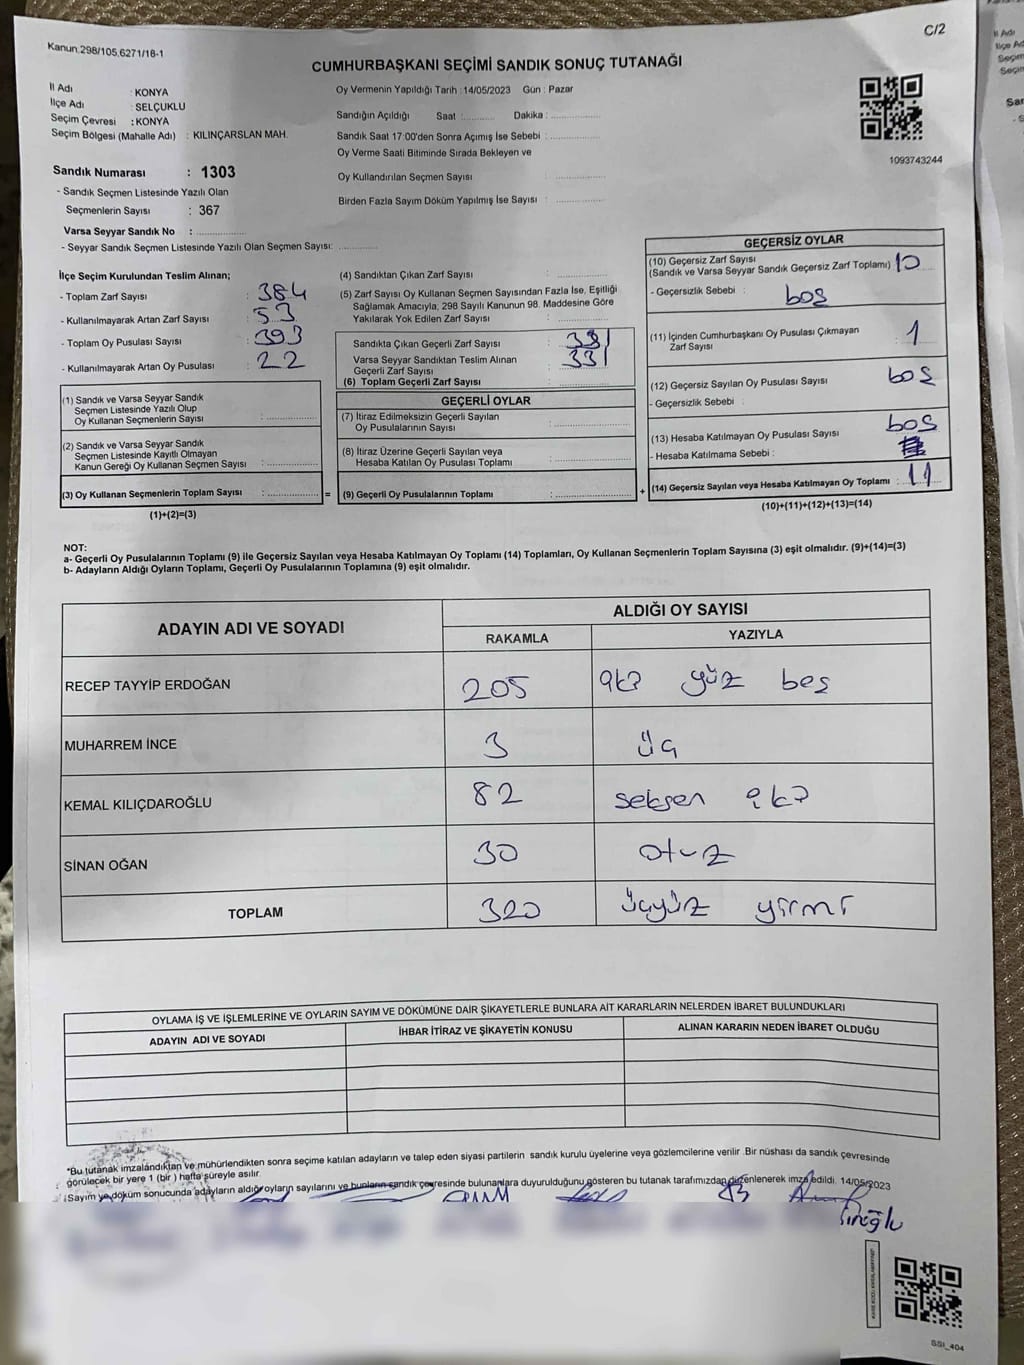 Kanun:298/105,6271/18-1
C/2
CUMHURBAŞKANI SEÇİMİ SANDIK SONUÇ TUTANAĞI
İl Adı : KONYA
İlçe Adı : SELÇUKLU
Seçim Çevresi : KONYA
Seçim Bölgesi (Mahalle Adı) : KILINÇARSLAN MAH.
Oy Vermenin Yapıldığı Tarih : 14/05/2023 Gün : Pazar
Sandığın Açıldığı Saat : ............ Dakika : ................
Sandık Saat 17:00'den Sonra Açımış İse Sebebi : ................
Oy Verme Saati Bitiminde Sırada Bekleyen ve
Oy Kullandırılan Seçmen Sayısı : ................
Birden Fazla Sayım Döküm Yapılmış İse Sayısı : ................
1093743244
Sandık Numarası : 1303
- Sandık Seçmen Listesinde Yazılı Olan
Seçmenlerin Sayısı : 367
Varsa Seyyar Sandık No : ................
- Seyyar Sandık Seçmen Listesinde Yazılı Olan Seçmen Sayısı: ............
İlçe Seçim Kurulundan Teslim Alınan;
- Toplam Zarf Sayısı : 384
- Kullanılmayarak Artan Zarf Sayısı : 53
- Toplam Oy Pusulası Sayısı : 393
- Kullanılmayarak Artan Oy Pusulası : 22
(1) Sandık ve Varsa Seyyar Sandık
Seçmen Listesinde Yazılı Olup
Oy Kullanan Seçmenlerin Sayısı : ................
(2) Sandık ve Varsa Seyyar Sandık
Seçmen Listesinde Kayıtlı Olmayan
Kanun Gereği Oy Kullanan Seçmen Sayısı : ................
(3) Oy Kullanan Seçmenlerin Toplam Sayısı : ................ =
(1)+(2)=(3)
(4) Sandıktan Çıkan Zarf Sayısı : ................
(5) Zarf Sayısı Oy Kullanan Seçmen Sayısından Fazla İse, Eşitliği
Sağlamak Amacıyla, 298 Sayılı Kanunun 98. Maddesine Göre
Yakılarak Yok Edilen Zarf Sayısı : ................
Sandıkta Çıkan Geçerli Zarf Sayısı : 331
Varsa Seyyar Sandıktan Teslim Alınan
Geçerli Zarf Sayısı : 331
(6) Toplam Geçerli Zarf Sayısı : ................
GEÇERLİ OYLAR
(7) İtiraz Edilmeksizin Geçerli Sayılan
Oy Pusulalarının Sayısı : ................
(8) İtiraz Üzerine Geçerli Sayılan veya
Hesaba Katılan Oy Pusulası Toplamı : ................
(9) Geçerli Oy Pusulalarının Toplamı : ................ +
GEÇERSİZ OYLAR
(10) Geçersiz Zarf Sayısı
(Sandık ve Varsa Seyyar Sandık Geçersiz Zarf Toplamı) 10
- Geçersizlik Sebebi : boş
(11) İçinden Cumhurbaşkanı Oy Pusulası Çıkmayan
Zarf Sayısı : 1
(12) Geçersiz Sayılan Oy Pusulası Sayısı : boş
- Geçersizlik Sebebi :
(13) Hesaba Katılmayan Oy Pusulası Sayısı : boş
- Hesaba Katılmama Sebebi :
(14) Geçersiz Sayılan veya Hesaba Katılmayan Oy Toplamı : 11
(10)+(11)+(12)+(13)=(14)
NOT:
a- Geçerli Oy Pusulalarının Toplamı (9) ile Geçersiz Sayılan veya Hesaba Katılmayan Oy Toplamı (14) Toplamları, Oy Kullanan Seçmenlerin Toplam Sayısına (3) eşit olmalıdır. (9)+(14)=(3)
b- Adayların Aldığı Oyların Toplamı, Geçerli Oy Pusulalarının Toplamına (9) eşit olmalıdır.
ADAYIN ADI VE SOYADI
ALDIĞI OY SAYISI
RAKAMLA YAZIYLA
RECEP TAYYİP ERDOĞAN 205 iki yüz beş
MUHARREM İNCE 3 üç
KEMAL KILIÇDAROĞLU 82 seksen iki
SİNAN OĞAN 30 otuz
TOPLAM 320 üçyüz yirmi
OYLAMA İŞ VE İŞLEMLERİNE VE OYLARIN SAYIM VE DÖKÜMÜNE DAİR ŞİKAYETLERLE BUNLARA AİT KARARLARIN NELERDEN İBARET BULUNDUKLARI
ADAYIN ADI VE SOYADI İHBAR İTİRAZ VE ŞİKAYETİN KONUSU ALINAN KARARIN NEDEN İBARET OLDUĞU
*Bu tutanak imzalandıktan ve mühürlendikten sonra seçime katılan adayların ve talep eden siyasi partilerin sandık kurulu üyelerine veya gözlemcilerine verilir .Bir nüshası da sandık çevresinde
görülecek bir yere 1 (bir ) hafta süreyle asılır.
Sayım ve döküm sonucunda adayların aldığı oyların sayılarını ve bunların sandık çevresinde bulunanlara duyurulduğunu gösteren bu tutanak tarafımızdan düzenlenerek imza edildi. 14/05/2023
SSI_404